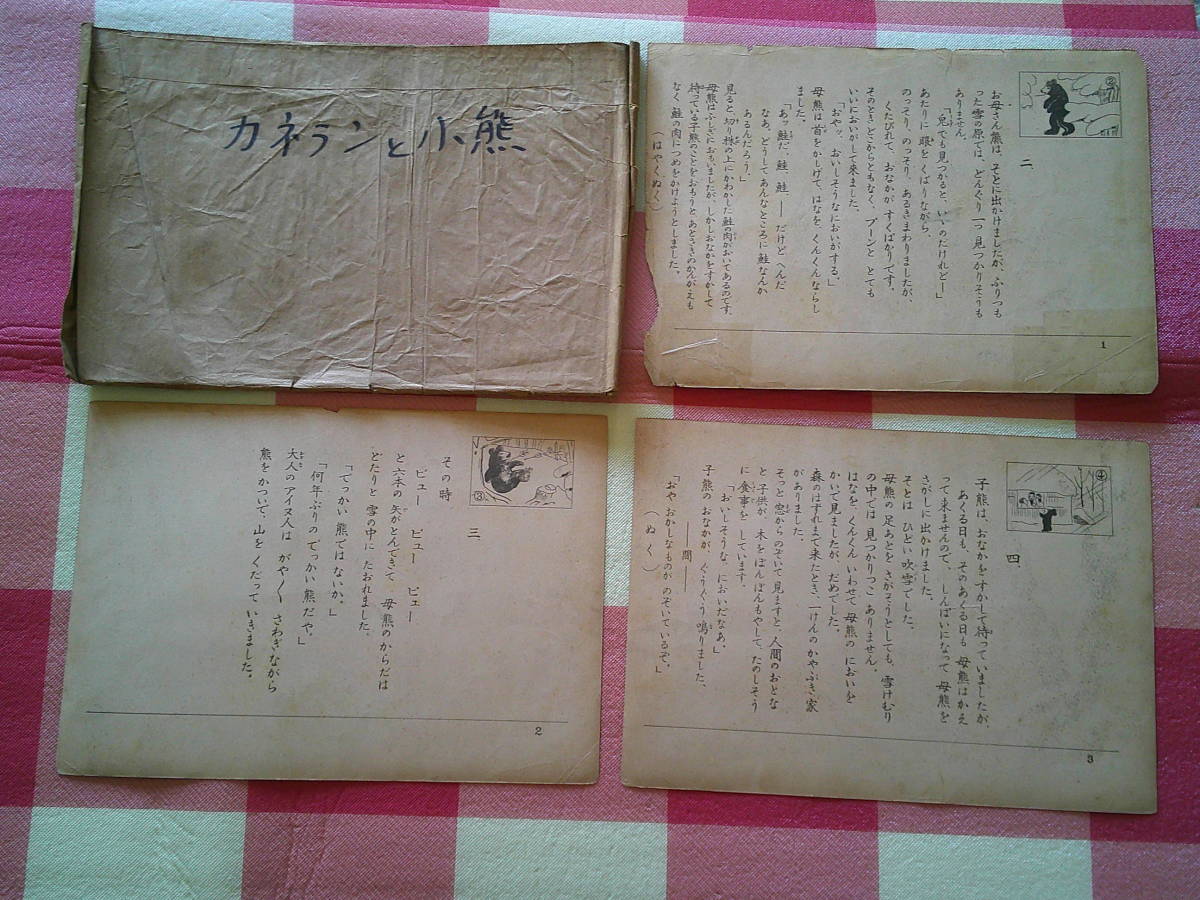 カネランと小熊
②
二、
お母さん熊は、そとに出かけましたが、ふりつも
った雪の原では、どんぐり一つ見つかりそうも
ありません。
「兎でも見つかると、いゝのだけれど―」
あたりに 眼を くばりながら、
のっそり、のっそり、あるきまわりましたが、
くたびれて、おなかが すくばかりです。
そのとき どこからともなく、プーンと とても
いいにおいがして来ました。
「おやッ、おいしそうなにおいがする。」
母熊は 首をかしげて、はなを、くんくんならし
ました。
「あッ 鮭だ、鮭、鮭、― だけど へんだ
なあ、どうして あんなところに 鮭なんか
あるんだろう。」
見ると、切り株の上に かわかした 鮭の肉がおいてあるのです。
母熊は ふしぎにおもいましたが、しかし おなかをすかして
待っている 子熊のことをおもうと、あとさきのかんがえも
なく 鮭の肉に つめをかけようとしました。
（はやくぬく）
1
③
三、
その時
ピュー ピュー ピュー
と 六本の 矢がとんできて、母熊のからだは
どたりと 雪の中に たおれました。
「でっかい 熊ではないか。」
「何年ぶりの でっかい 熊だや。」
大人のアイヌ人は がや〳〵 さわぎながら
熊を かついで、山を くだって いきました。
2
④
四、
子熊は、おなかをすかして 待っていましたが、
あくる日も、そのあくる日も 母熊は かえ
って 来ませんので、しんぱいになって 母熊を
さがしに 出かけました。
そとは ひどい 吹雪でした。
母熊の 足あとを さがそうとしても、雪けむり
の中では 見つかりっこ ありません。
はなを、くんくん いわせて 母熊の においを
かいで見ましたが、だめでした。
森のはずれまで 来たとき、一けんの かやぶき家
がありました。
そっと 窓からのぞいて 見ますと、人間のおとな
と 子供が、木をぼんぼんもやして、たのしそう
に 食事を しています。
「おいしそうな においだなあ。」
子熊の おなかが、ぐうぐう 鳴りました、
―― 間 ――
「おや おかしなものが のぞいているぞ。」
（ぬく）
3